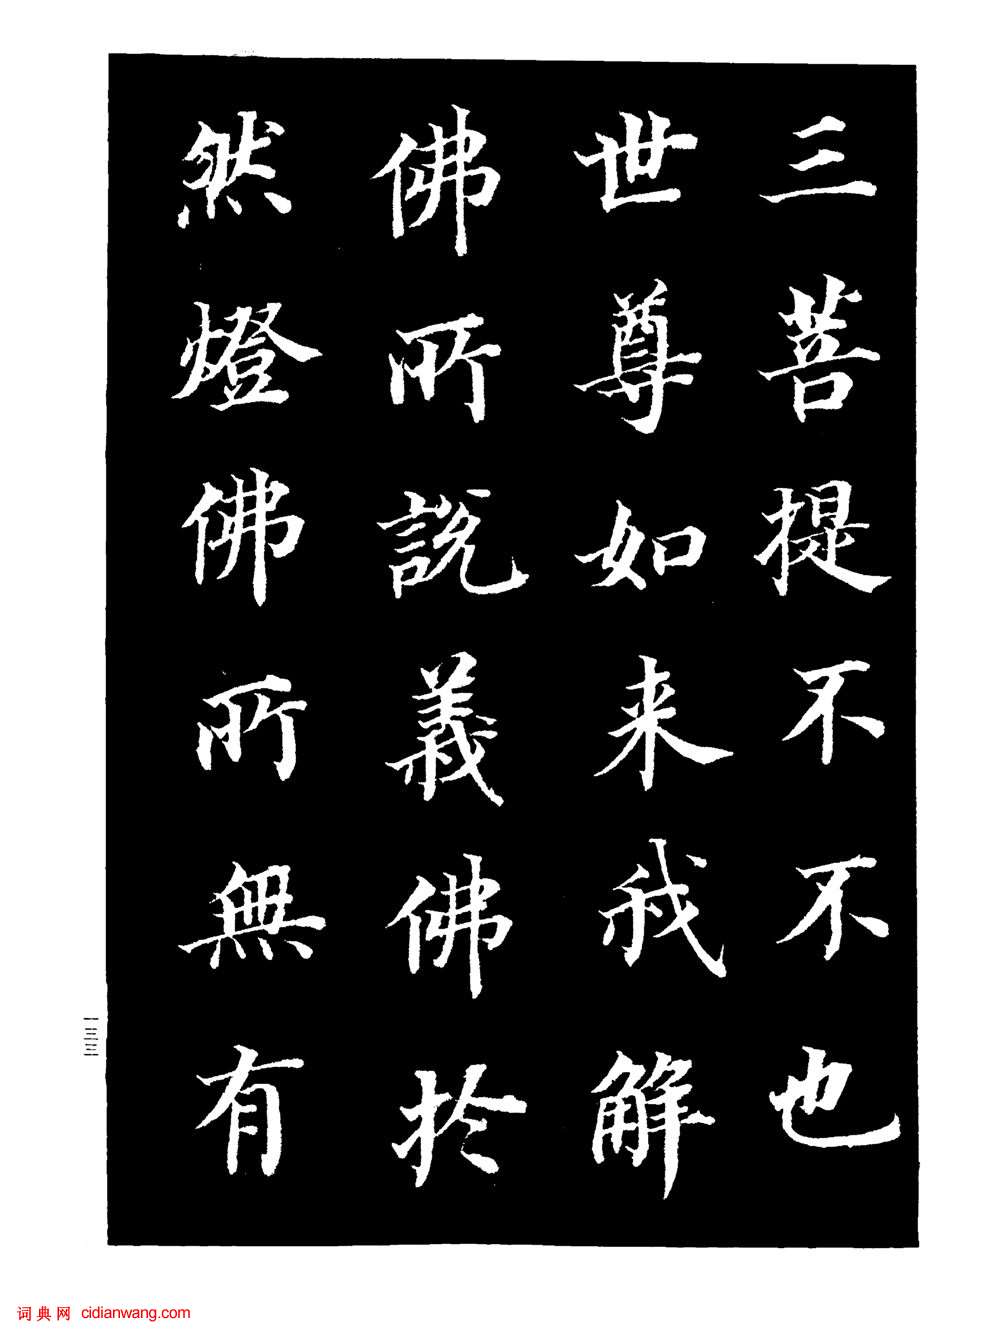 三菩提不不也
世尊如来我解
佛所説義佛於
然燈佛所無有
一三三
词典网 cidianwang.com